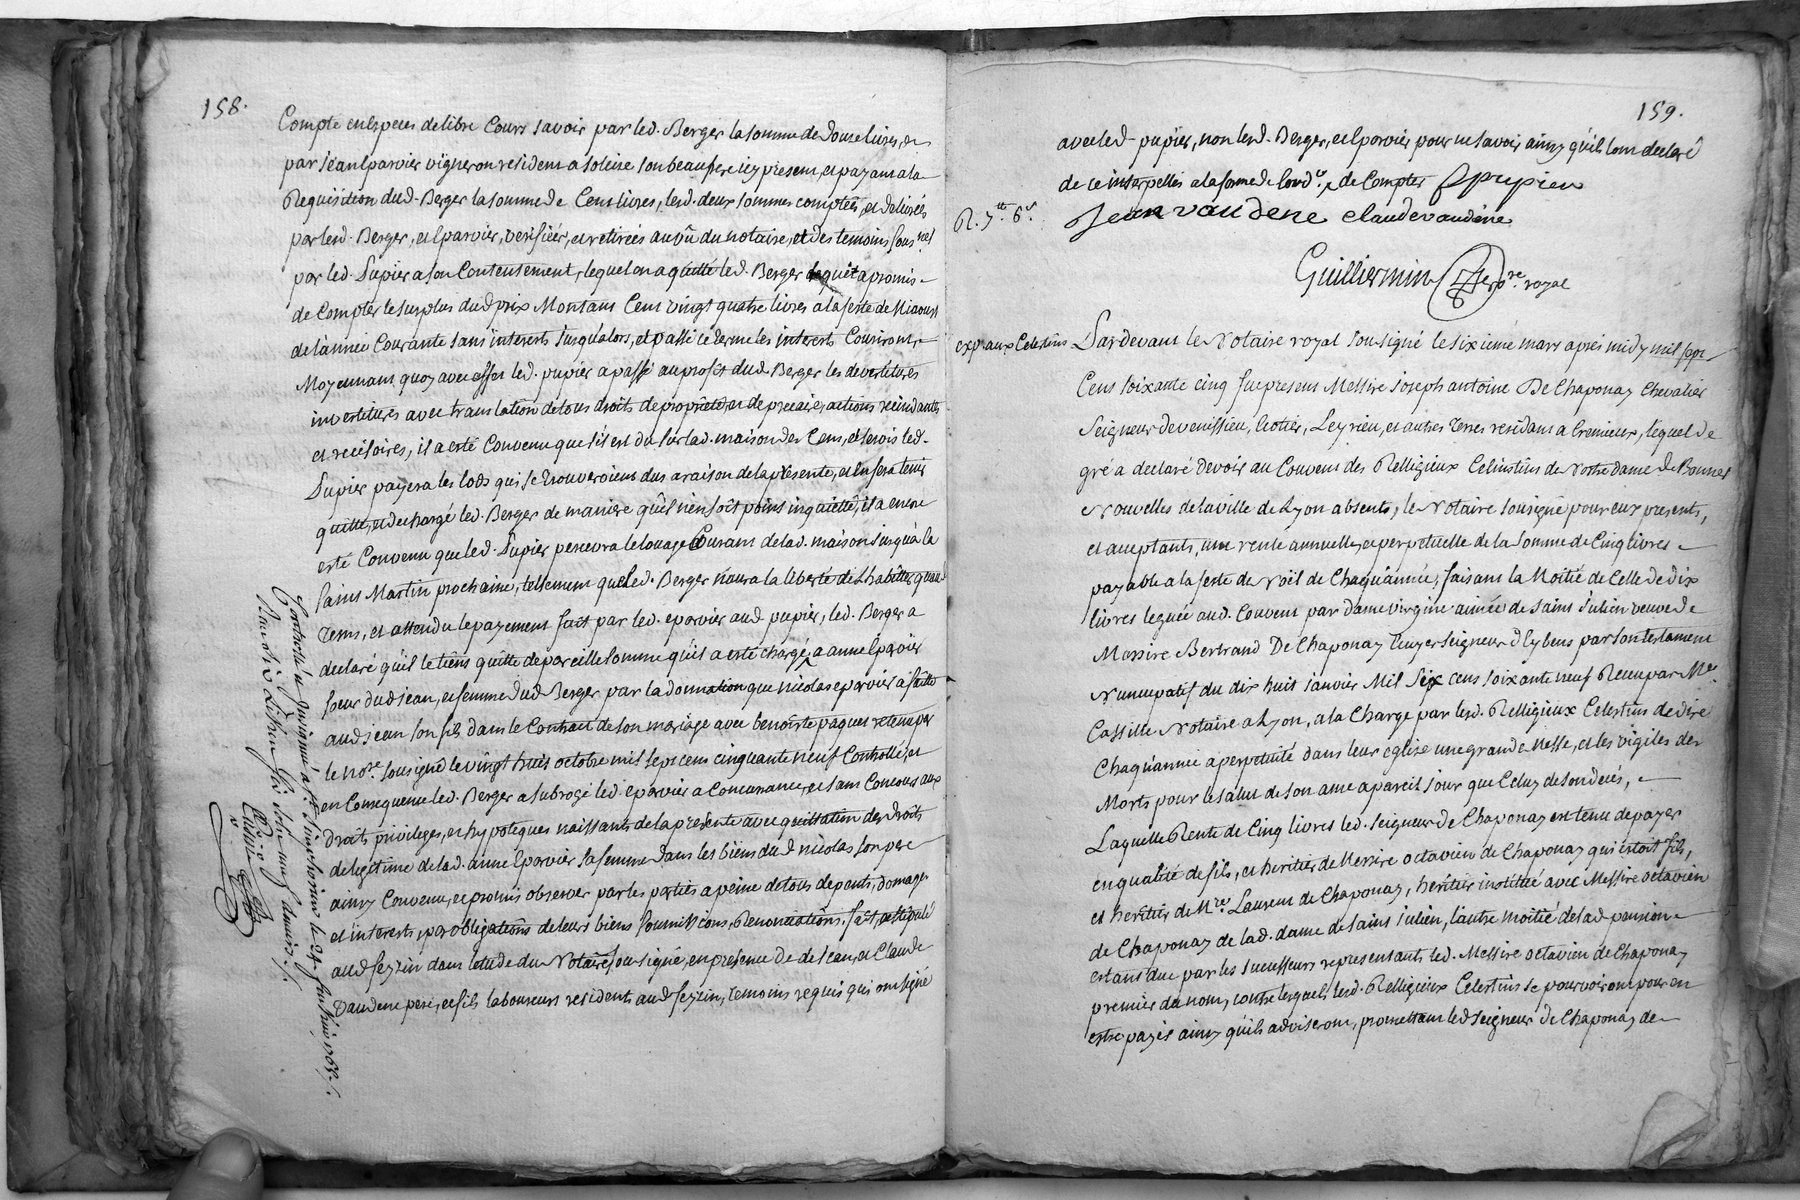 158.
Compte en Especes de libre Cours savoir par led. Berger la somme de Douse livres, et
par jean Eparvier vigneron resident a soleise son beaufrere icy present, et payant a la
Requisition dud. Berger la somme de Cent livres, lesd. deux sommes comptées, et delivrés
par lesd. Berger, et Eparvier, verifiées, et retirées au vû du notaire, et des temoins sous nes
par led. Pupier a son Contentement, lequel en a quitté led. Berger lequel a promis
de Compter le surplus dud prix Montant Cent vingt quatre livres a la feste de Miaoust
de l'année Courante sans interets jusqu'alors, et passé ce terme les interets Couriront
Moyennant quoy avec effet led. pupier a passé au profit dud Berger les devestitures
investitures avec translation de tous droits de proprieté, et de precaire, actions recindants
et recisoires, il a esté Convenu que s'il est du sur lad. maison des Cens, et servis led.
Pupier payera les lods qui se trouveroient dus a raison de la presente, et en fera tenir
quitte, et dechargé led. Berger de maniere qu'il n'en soit point inquietté, il a encore
esté Convenu que led. Pupier percevra le louage Courant de lad. maison jusqu'a la
saint Martin prochaine, tellement que led. Berger n'aura la liberté de l'habitter qu'aud
tems, et attendu le payement fait par led. eparvier aud pupier, led. Berger a
declaré qu'il le tient quitte de pareille somme qu'il a esté chargé a anne Eparvier
soeur dud jean, et femme dud Berger par la donnation que nicolas eparvier a faitte
aud jean son fils dans le Contract de son mariage avec benoitte paquet retenu par
le nore. sousigné le vingt huit octobre mil sept cens cinquante neuf Controllé, et
en Consequence led. Berger a subrogé led. eparvier a Concurrance, et sans Concours aux
droits privileges, et hypoteques naissants de la presente avec quittation des droits
de legitime de lad. anne Eparvier sa femme dans les biens dud nicolas son pere
ainsy Convenu, et promis observer par les parties a peine de tous depents, domages
et interets, par obligations de leurs biens soumissions, Renonciations, fait, et stipulé
aud feyzin dans letude du Notaire sousigné, en presence de de jean, et Claude
vaudene pere, et fils laboureurs residents aud feyzin, temoins requis qui ont signé
159.
avec led. pupier, non lesd. Berger, et Eparvier pour ne savoir ainsy qu'ils l'ont declaré
de ce interpellés a la forme de l'ordce. de Compter f pupier
R. 7tt. 6s. Jean vaudene claude vaudene
Guilliermin nre. royal
exp. aux Celestins Pardevant le Notaire royal sousigné le sixieme mars après midy mil sept
Cens soixante cinq fut present Messire joseph antoine De Chaponay Chevalier
Seigneur de venissieu, Leyrieu, et autres Terres residant a Cremieux, lequel de
gré a declaré devoir au Couvent des Relligieux Celestins de Notre dame de Bonnes
Nouvelles de la ville de Lyon absents, le Notaire sousigné pour eux present,
et acceptant, une rente annuelle, et perpetuelle de la somme de Cinq livres
payable a la feste de Noël de Chaqu'année, faisant la Moitié de Celle de dix
livres leguée aud. Couvent par dame virginie aimée de saint julien veuve de
Messire Bertrand De Chaponay Ecuyer seigneur d'Eybens par son testament
Nuncupatif du dix huit janvier Mil Six cens soixante neuf Receu par Me.
Cassille Notaire a Lyon, a la Charge par lesd. Relligieux Celestins de dire
Chaqu'année a perpetuité dans leur eglise une grande Messe, et les vigiles des
Morts pour le salut de son ame a pareil jour que Celuy de son decés,
Laquelle Rente de Cinq livres led. seigneur de Chaponay est tenu de payer
en qualité de fils, et heritier de Messire octavien de Chaponay qui estoit fils,
et heritier de Mre. Laurent de Chaponay, heritier institué avec Messire octavien
de Chaponay de lad. dame de saint julien, l'autre moitié de lad pension
estant due par les successeurs representants led. Messire octavien de Chaponay
premier du nom, contre lesquels lesd. Relligieux Celestins se pourvoiront pour en
estre payés ainsy qu'ils adviseront, promettant led seigneur de Chaponay de